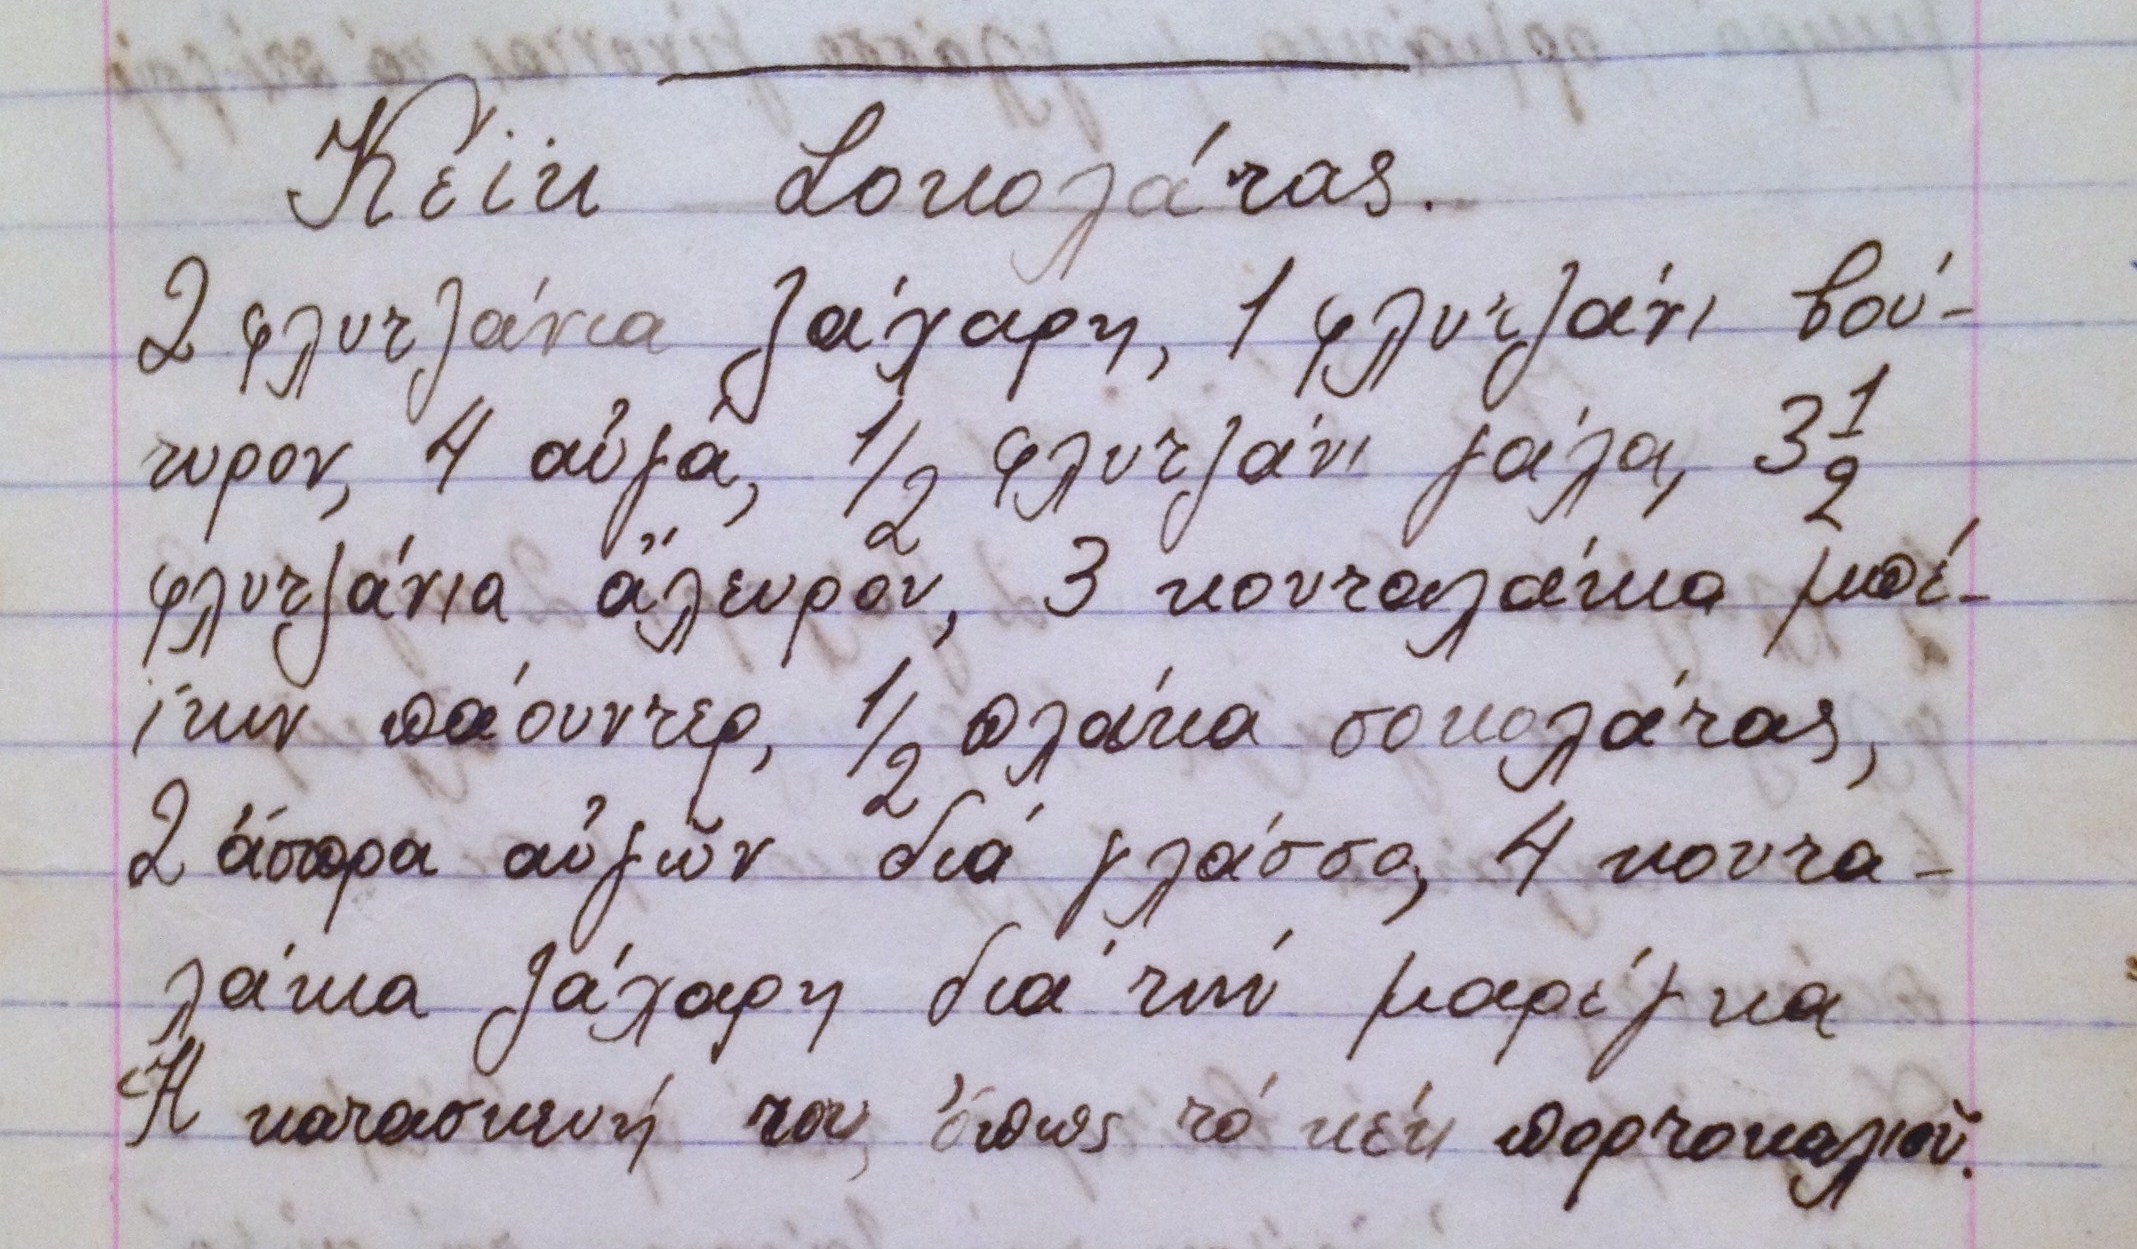 Κέϊκ Σοκολάτας.
2 φλυτζάνια ζάχαρη, 1 φλυτζάνι βού-
τυρον, 4 αὐγά, 1/2 φλυτζάνι γάλα, 3 1/2
φλυτζάνια ἄλευρον, 3 κουταλάκια μπέ-
ϊκιν πάουντερ, 1/2 πλάκα σοκολάτας,
2 ἄσπρα αὐγῶν διά γλάσσο, 4 κουτα-
λάκια ζάχαρη διά τήν μαρέγκα
Ἡ κατασκευή του, ὅπως τό κέικ πορτοκαλιοῦ.